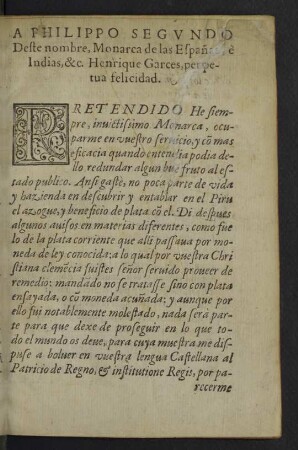 A PHILIPPO SEGVNDO
Deste nombre, Monarca de las Españas, è
Indias, &c. Henrique Garces, perpe
tua felicidad.
PRETENDIDO He siem-
pre, inuictissimo Monarca, ocu-
parme en vuestro seruicio, y cō mas
eficacia quando entendia podia de-
llo redundar algun buē fruto al es-
tado publico. Ansi gastè, no poca parte de vida
y hazienda en descubrir y entablar en el Piru
el azogue, y beneficio de plata cō el. Di despues
algunos auisos en materias diferentes, como fue
lo de la plata corriente que alli passaua por mo-
neda de ley conocida: a lo qual por vuestra Chri
stiana clemēcia fuistes señor seruido proueer de
remedio: mandādo no se tratasse sino con plata
ensayada, o cō moneda acuñada: y aunque por
ello fui notablemente molestado, nada serà par-
te para que dexe de proseguir en lo que to-
do el mundo os deue, para cuya muestra me dis-
puse a boluer en vuestra lengua Castellana al
Patricio de Regno, & institutione Regis, por pa-
recerme